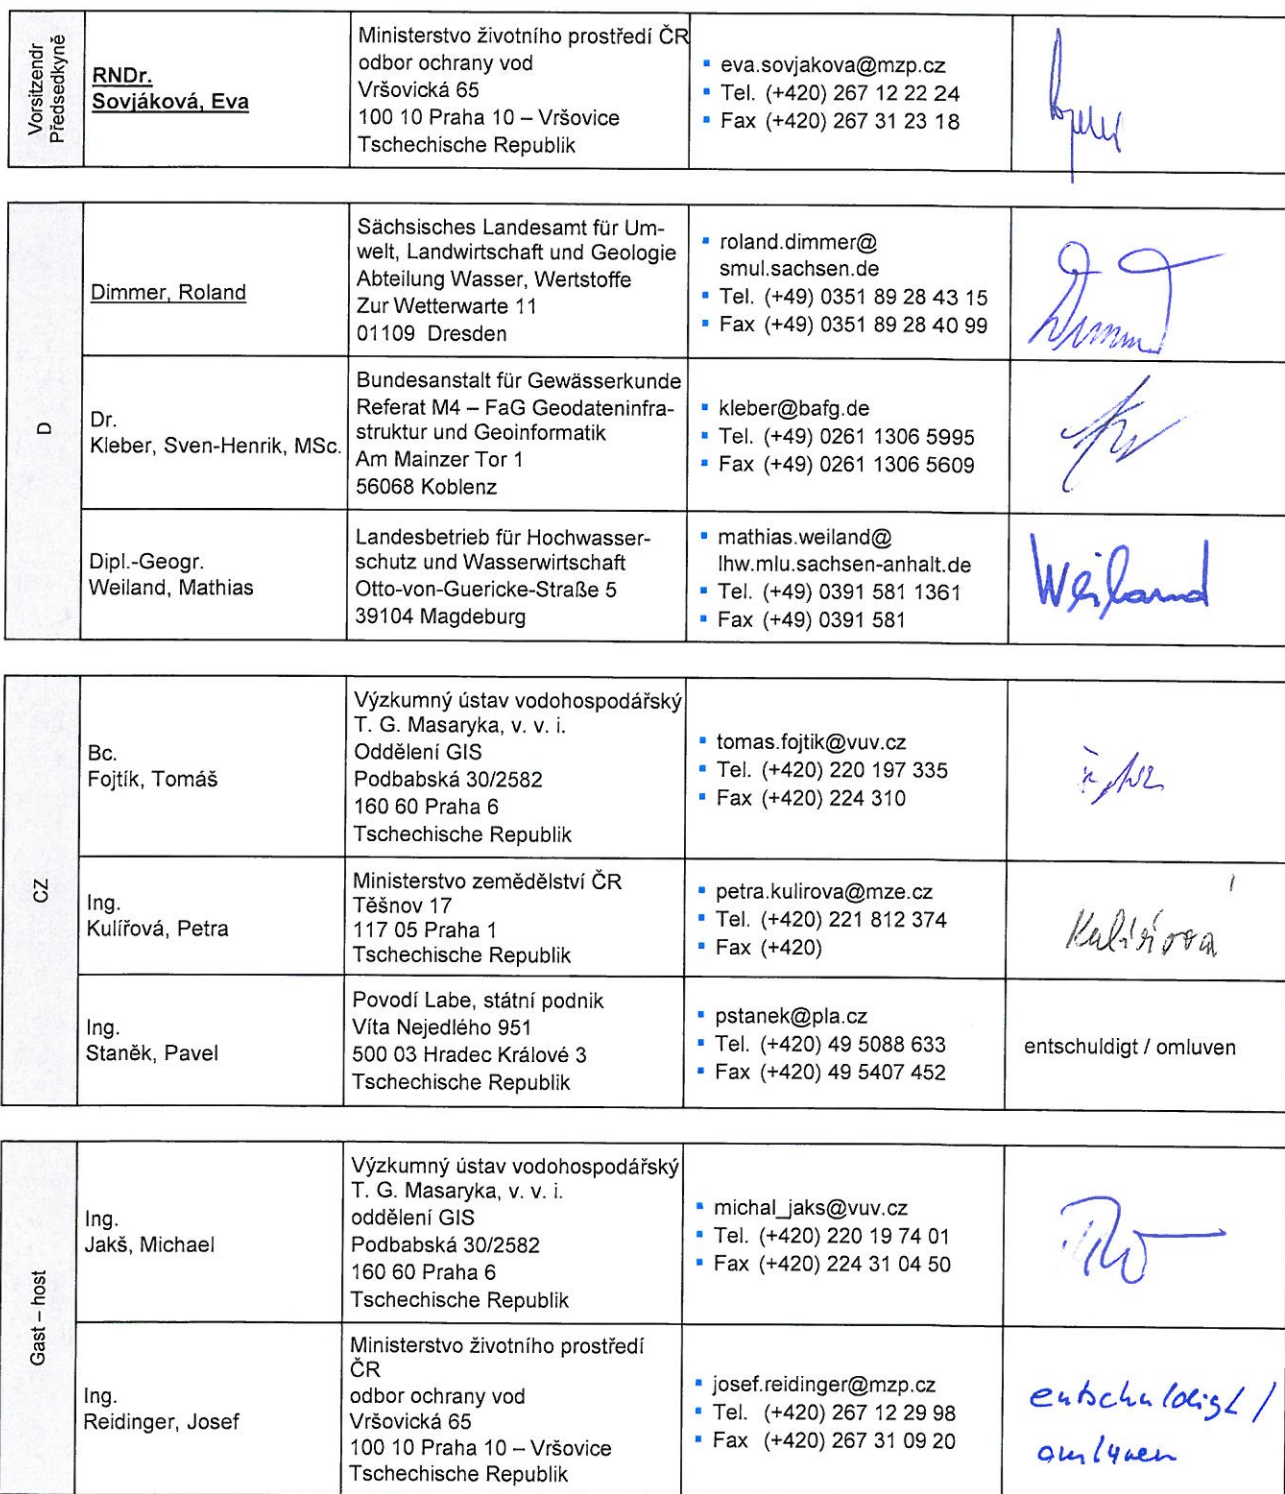 Vorsitzendr
Předsedkyně
RNDr.
Sovjáková, Eva
Ministerstvo životního prostředí ČR
odbor ochrany vod
Vršovická 65
100 10 Praha 10 – Vršovice
Tschechische Republik
▪ eva.sovjakova@mzp.cz
▪ Tel. (+420) 267 12 22 24
▪ Fax (+420) 267 31 23 18
D
Dimmer, Roland
Sächsisches Landesamt für Um-
welt, Landwirtschaft und Geologie
Abteilung Wasser, Wertstoffe
Zur Wetterwarte 11
01109 Dresden
▪ roland.dimmer@
smul.sachsen.de
▪ Tel. (+49) 0351 89 28 43 15
▪ Fax (+49) 0351 89 28 40 99
Dr.
Kleber, Sven-Henrik, MSc.
Bundesanstalt für Gewässerkunde
Referat M4 – FaG Geodateninfra-
struktur und Geoinformatik
Am Mainzer Tor 1
56068 Koblenz
▪ kleber@bafg.de
▪ Tel. (+49) 0261 1306 5995
▪ Fax (+49) 0261 1306 5609
Dipl.-Geogr.
Weiland, Mathias
Landesbetrieb für Hochwasser-
schutz und Wasserwirtschaft
Otto-von-Guericke-Straße 5
39104 Magdeburg
▪ mathias.weiland@
lhw.mlu.sachsen-anhalt.de
▪ Tel. (+49) 0391 581 1361
▪ Fax (+49) 0391 581
Weiland
CZ
Bc.
Fojtík, Tomáš
Výzkumný ústav vodohospodářský
T. G. Masaryka, v. v. i.
Oddělení GIS
Podbabská 30/2582
160 60 Praha 6
Tschechische Republik
▪ tomas.fojtik@vuv.cz
▪ Tel. (+420) 220 197 335
▪ Fax (+420) 224 310
Ing.
Kulířová, Petra
Ministerstvo zemědělství ČR
Těšnov 17
117 05 Praha 1
Tschechische Republik
▪ petra.kulirova@mze.cz
▪ Tel. (+420) 221 812 374
▪ Fax (+420)
Kulířová
Ing.
Staněk, Pavel
Povodí Labe, státní podnik
Víta Nejedlého 951
500 03 Hradec Králové 3
Tschechische Republik
▪ pstanek@pla.cz
▪ Tel. (+420) 49 5088 633
▪ Fax (+420) 49 5407 452
entschuldigt / omluven
Gast – host
Ing.
Jakš, Michael
Výzkumný ústav vodohospodářský
T. G. Masaryka, v. v. i.
oddělení GIS
Podbabská 30/2582
160 60 Praha 6
Tschechische Republik
▪ michal_jaks@vuv.cz
▪ Tel. (+420) 220 19 74 01
▪ Fax (+420) 224 31 04 50
Ing.
Reidinger, Josef
Ministerstvo životního prostředí
ČR
odbor ochrany vod
Vršovická 65
100 10 Praha 10 – Vršovice
Tschechische Republik
▪ josef.reidinger@mzp.cz
▪ Tel. (+420) 267 12 29 98
▪ Fax (+420) 267 31 09 20
entschuldigt /
omluven